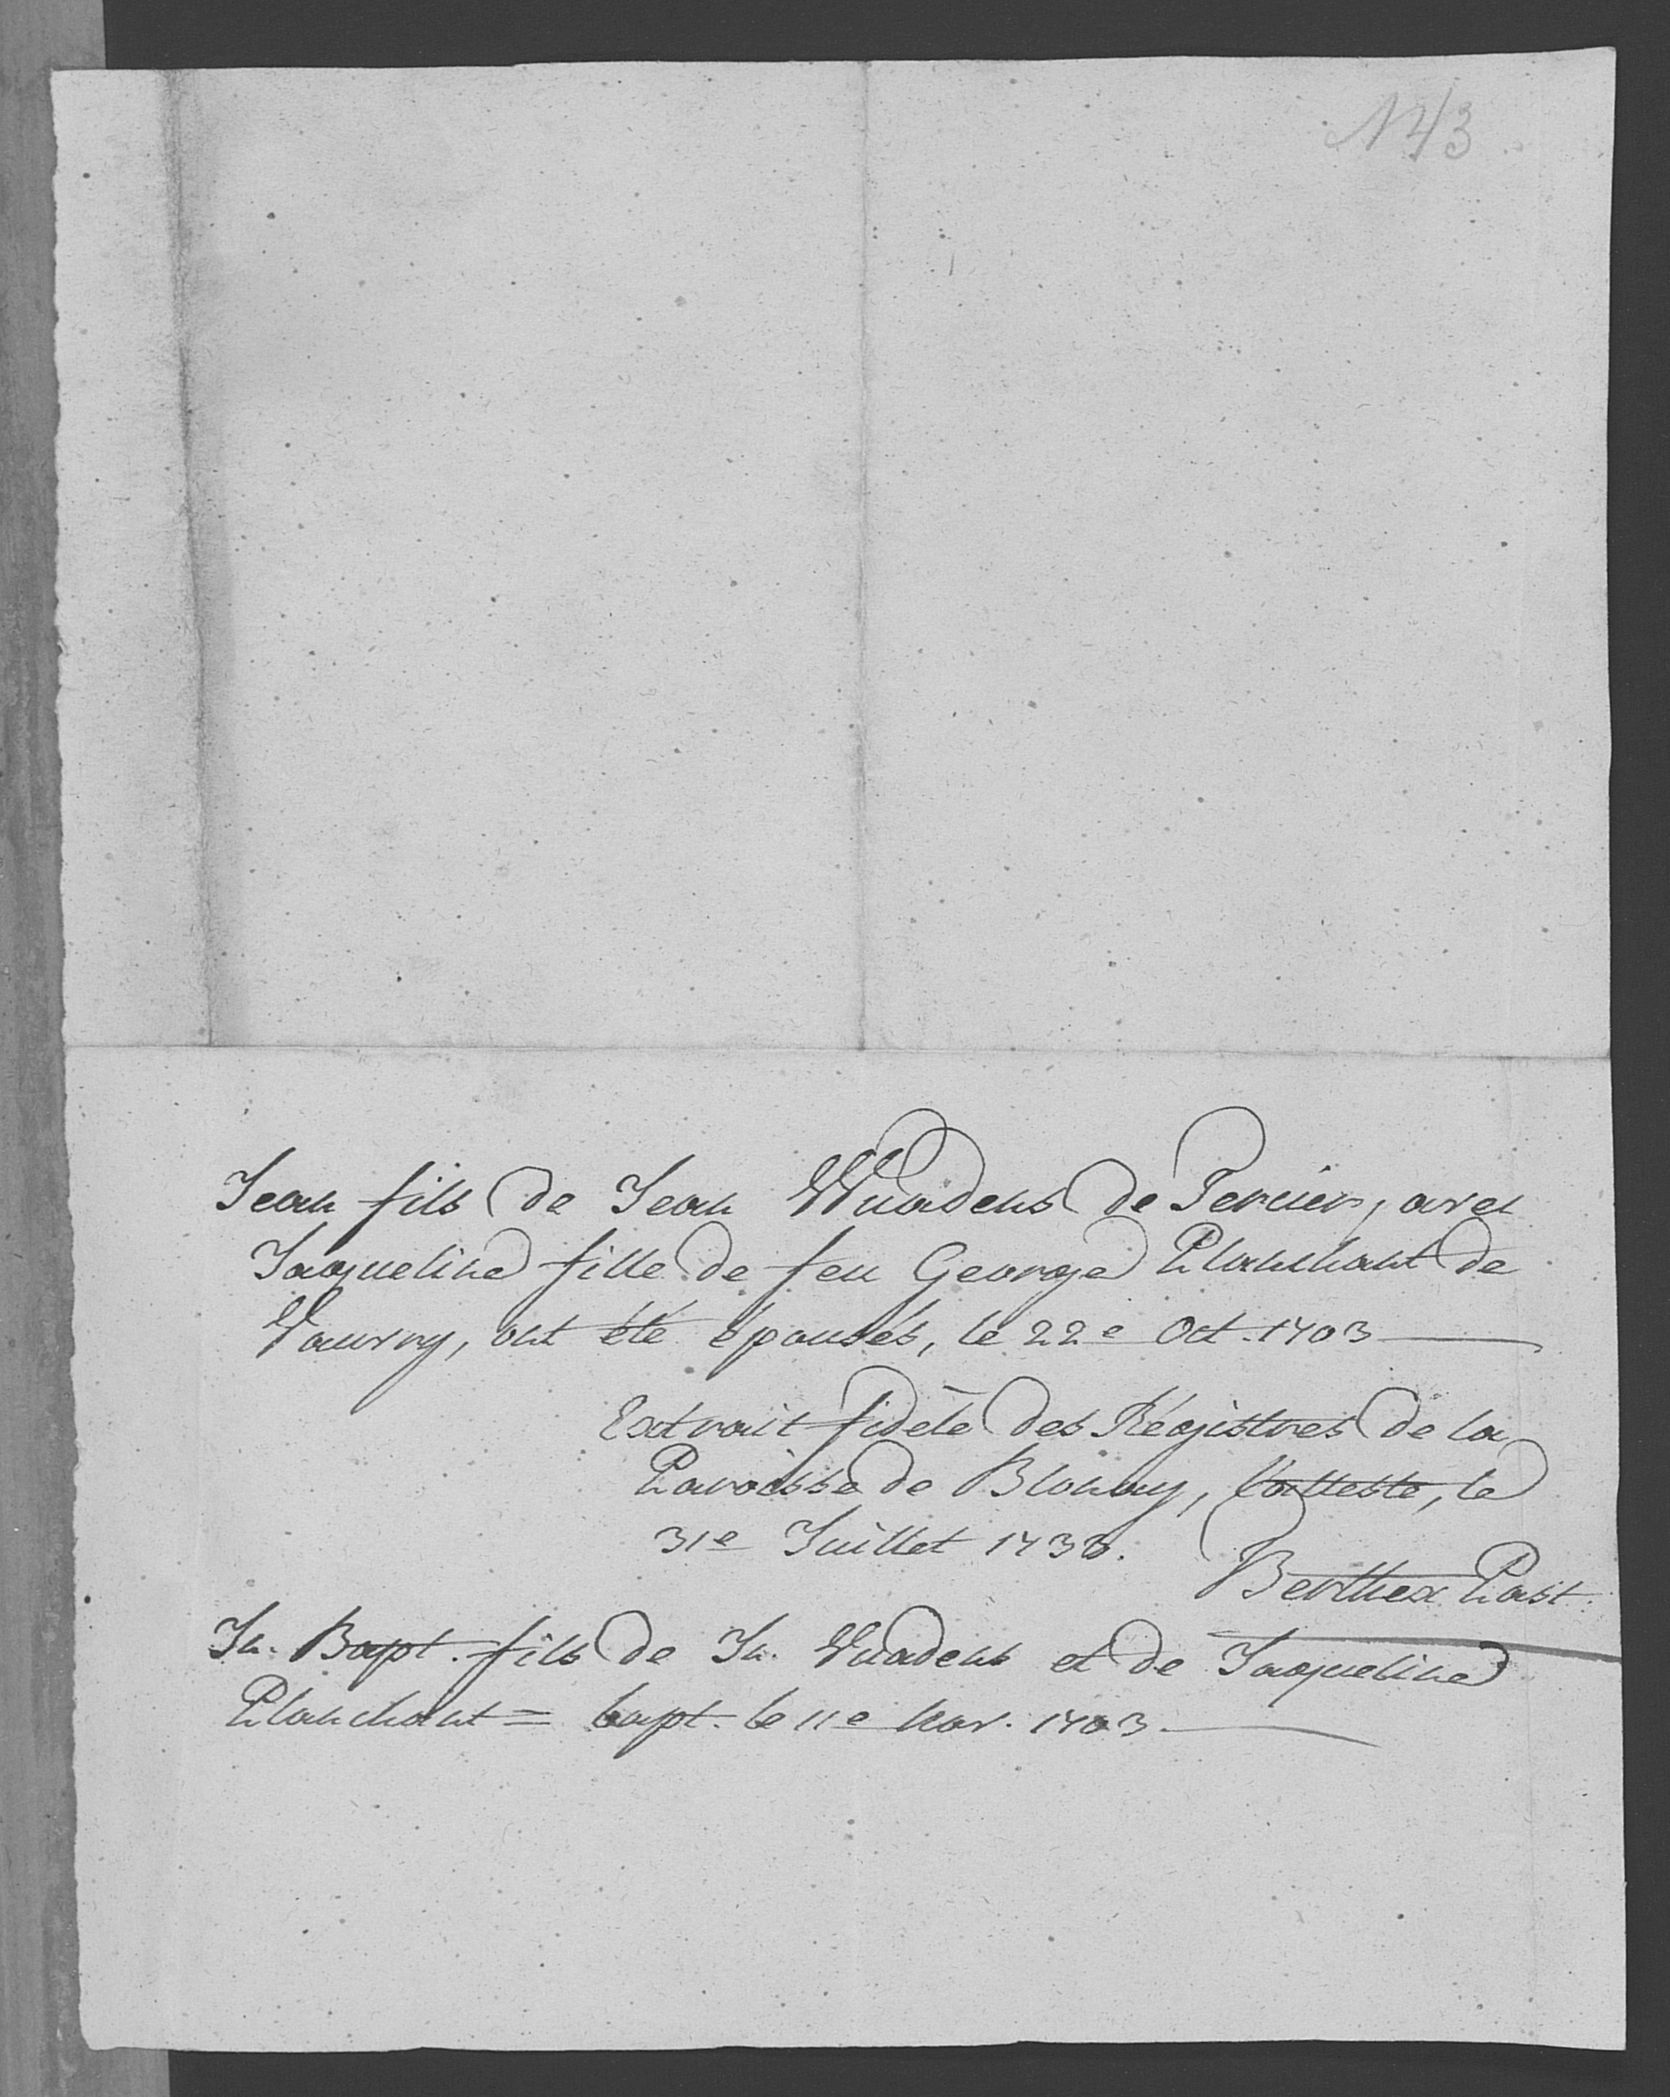 143
Jean fils de Jean Wuadens de Tercier, avec
Jaqueline fille de feu George Planchant de
Vauvry, ont été épousés, le 22e Oct. 1703
Extrait fidèle des Régistres de la
Paroisse de Blonay, l'atteste, le
31e Juillet 1733.
Berthex Past.
Jn. Bapt. fils de Jn. Vuadens et de Jaqueline
Planchant = bapt. le 11e Nov. 1703.